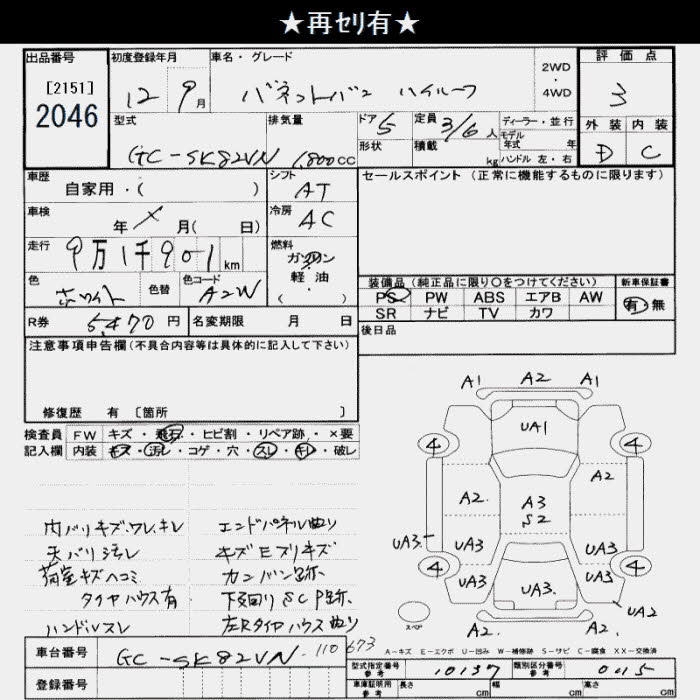 ★再セリ有★
出品番号 初度登録年月 車名・グレード 2WD・4WD 評価点
[2151] 2046 12 9月 バネットバン ハイルーフ 3
型式 排気量 ドア 5 定員 3/6人 ディーラー・並行 外装 内装
モデル年式 年
GC-SK82VN 1,800cc 形状 積載 kg ハンドル 左・右 D C
車歴 シフト セールスポイント (正常に機能するものに限ります)
自家用・( ) AT
車検 冷房
年 × 月( 日) AC
走行 燃料
9万1千901km ガソリン
色 色替 色コード 軽・油 装備品 (純正品に限り〇をつけてください) 新車保証書
ホワイト A2W ( ) PS PW ABS エアB AW 有 無
R券 5,470円 名変期限 月 日 SR ナビ TV カワ
後日品
注意事項申告欄 (不具合内容等は具体的に記入して下さい)
修復歴 有 〔箇所 〕
検査員 FW キズ・飛石・ヒビ割・リペア跡・×要
記入欄 内装 キズ・汚れ・コゲ・穴・スレ・キレ・破し
A1 A2 A1
4 UA1 4
A2 A3 A2
S2
UA3 UA3 UA3
4 UA3 UA3 UA3 4
UA2
A2 A2 A2
スペア
内バリキズ、ワレ、キレ エンドパネルぬり
天バリ汚れ キズEフリキズ
荷室キズヘコミ カンバン跡
タイヤハウス有 下回りSCP跡
ハンドルスレ 左Rタイヤハウスぬり
A-キズ E-エクボ U-凹み W-補修跡 S-サビ C-腐食 XX-交換済
車台番号 GC-SK82VN-110673 型式指定番号 参考 10137 類別区分番号 参考 0015
登録番号 車庫証明用 参考 長さ cm 幅 cm 高さ cm